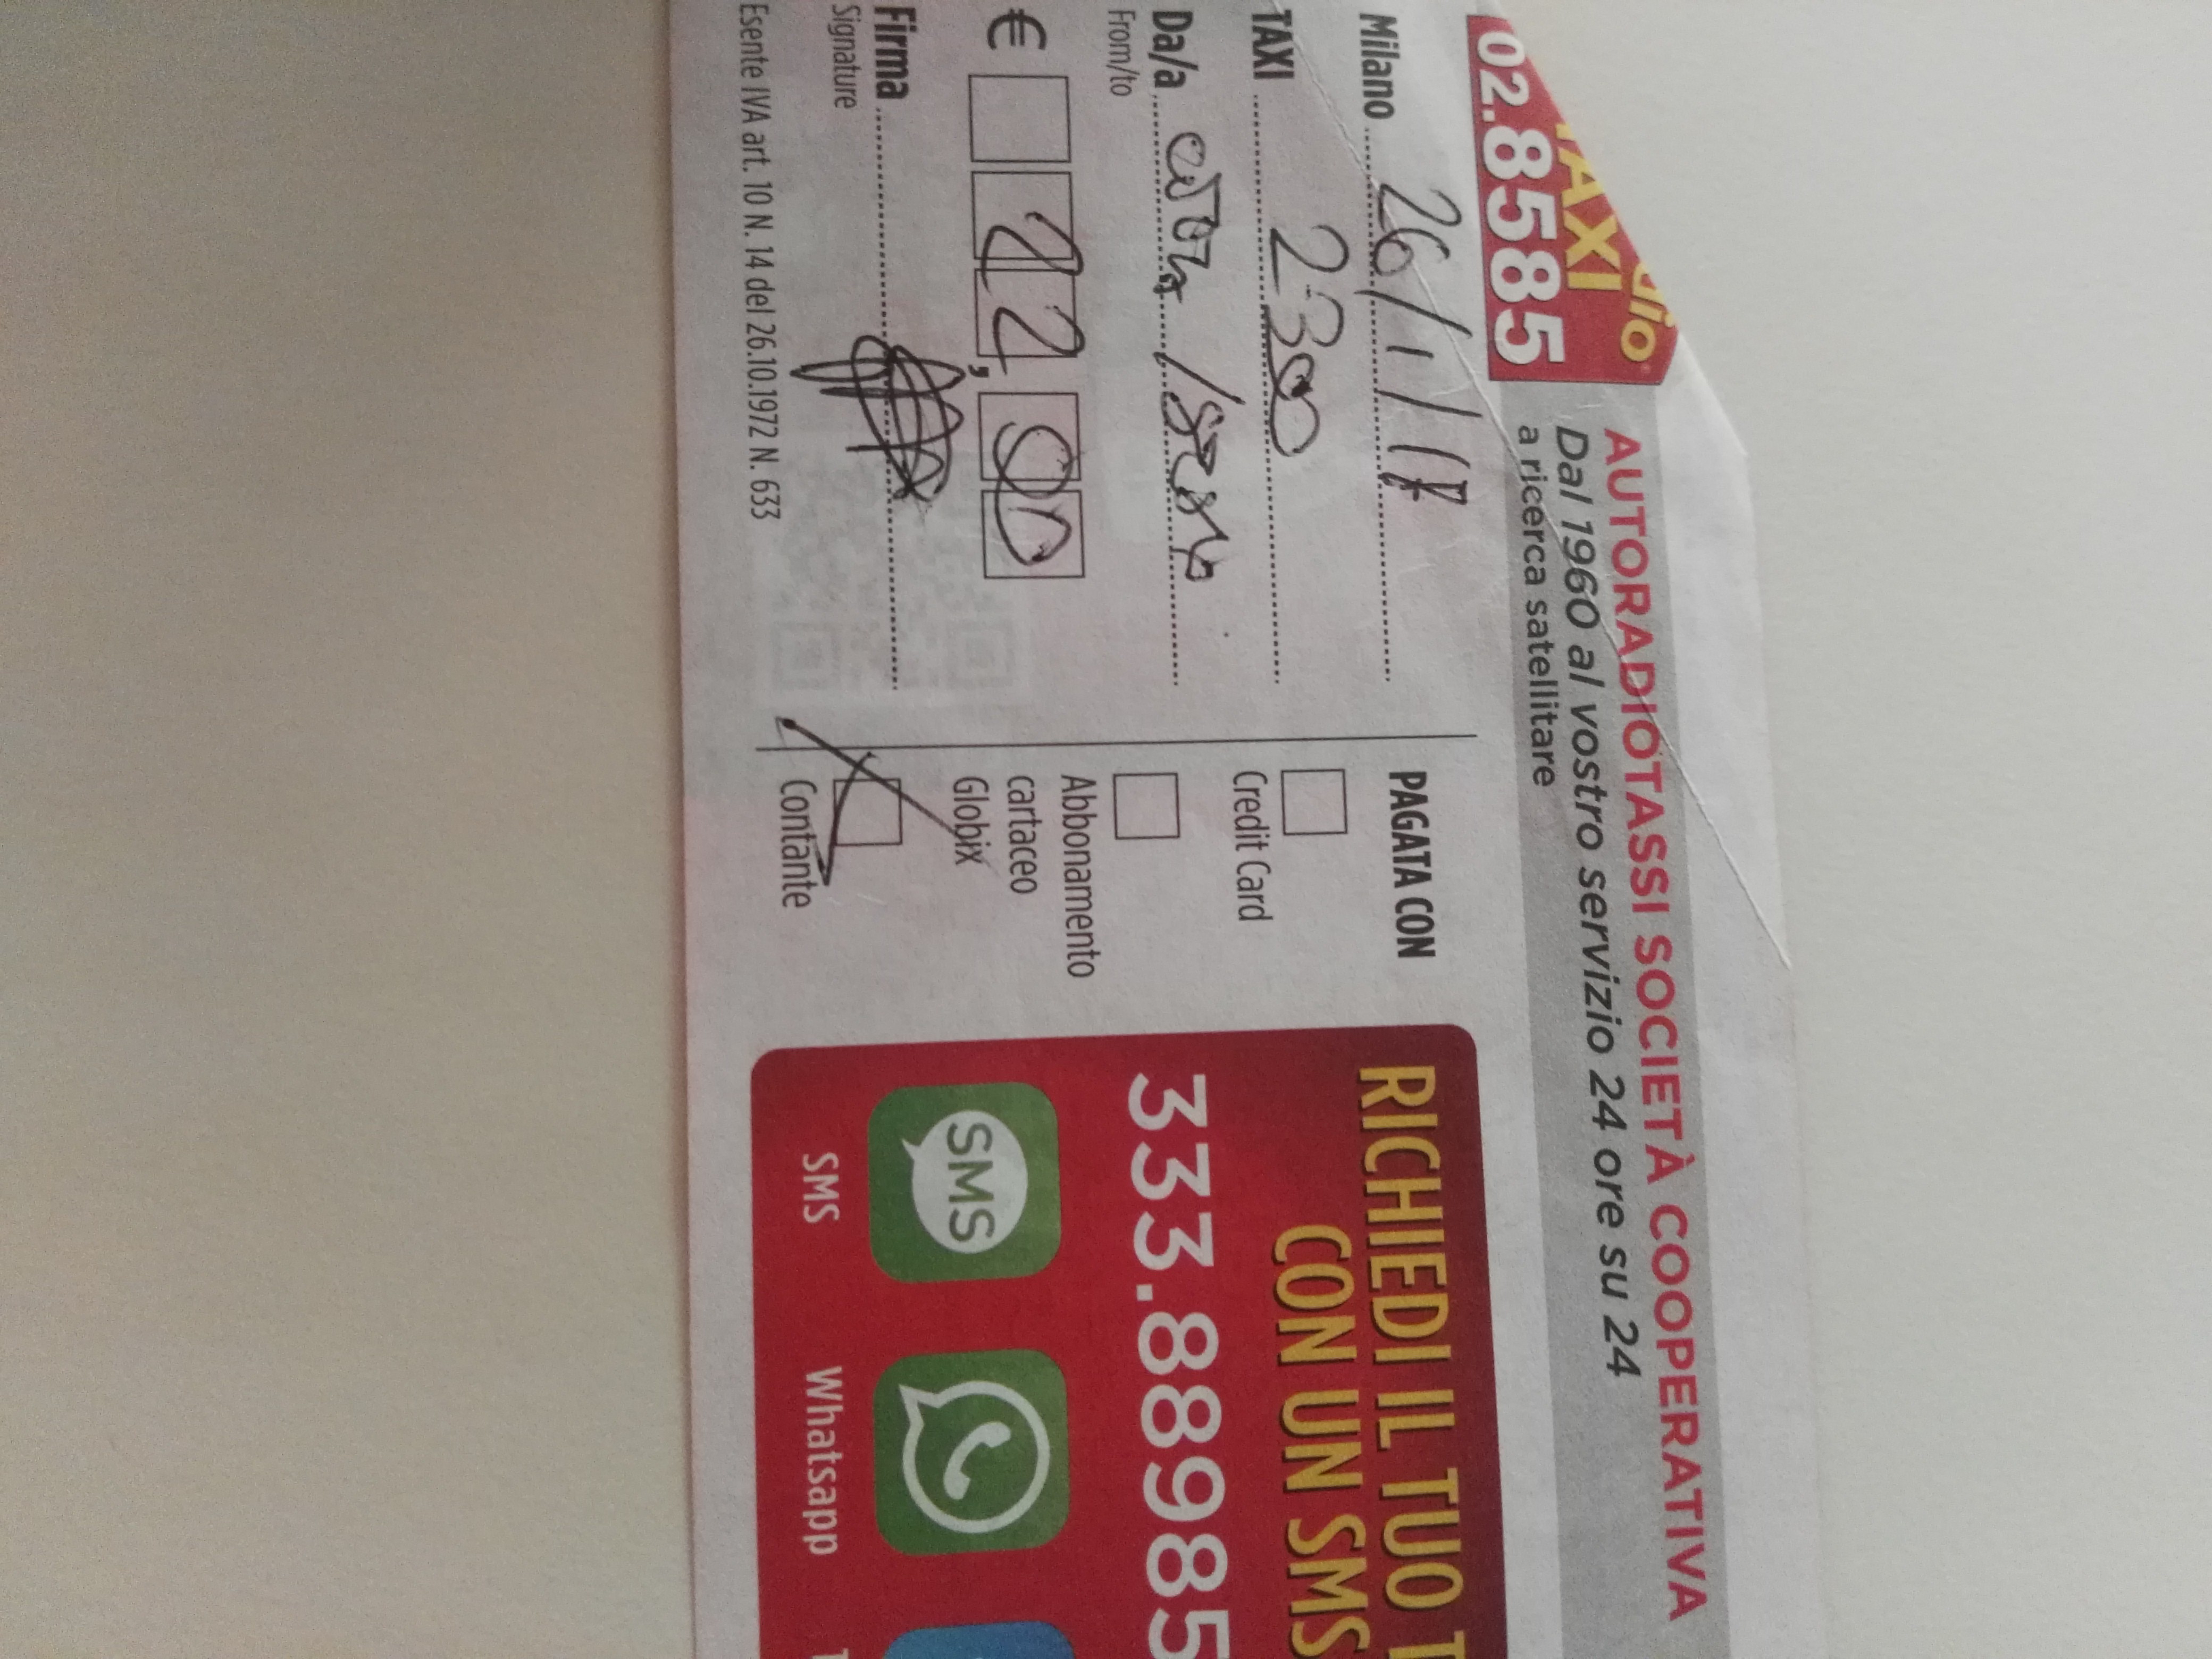 TAXI
02.8585
AUTORADIOTASSI SOCIETÀ COOPERATIVA
Dal 1960 al vostro servizio 24 ore su 24
a ricerca satellitare
Milano 26/1/
TAXI 2300
Da/a
From/to
€ 22,90
Firma
Signature
Esente IVA art. 10 N. 14 del 26.10.1972 N. 633
PAGATA CON
Credit Card
Abbonamento
cartaceo
Globix
Contante
RICHIEDI IL TUO T
CON UN SMS
333.88985
SMS
SMS
Whatsapp